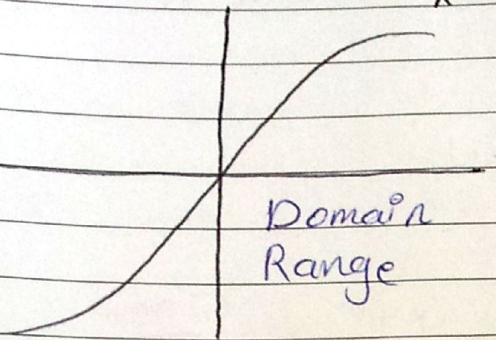 Domain
Range